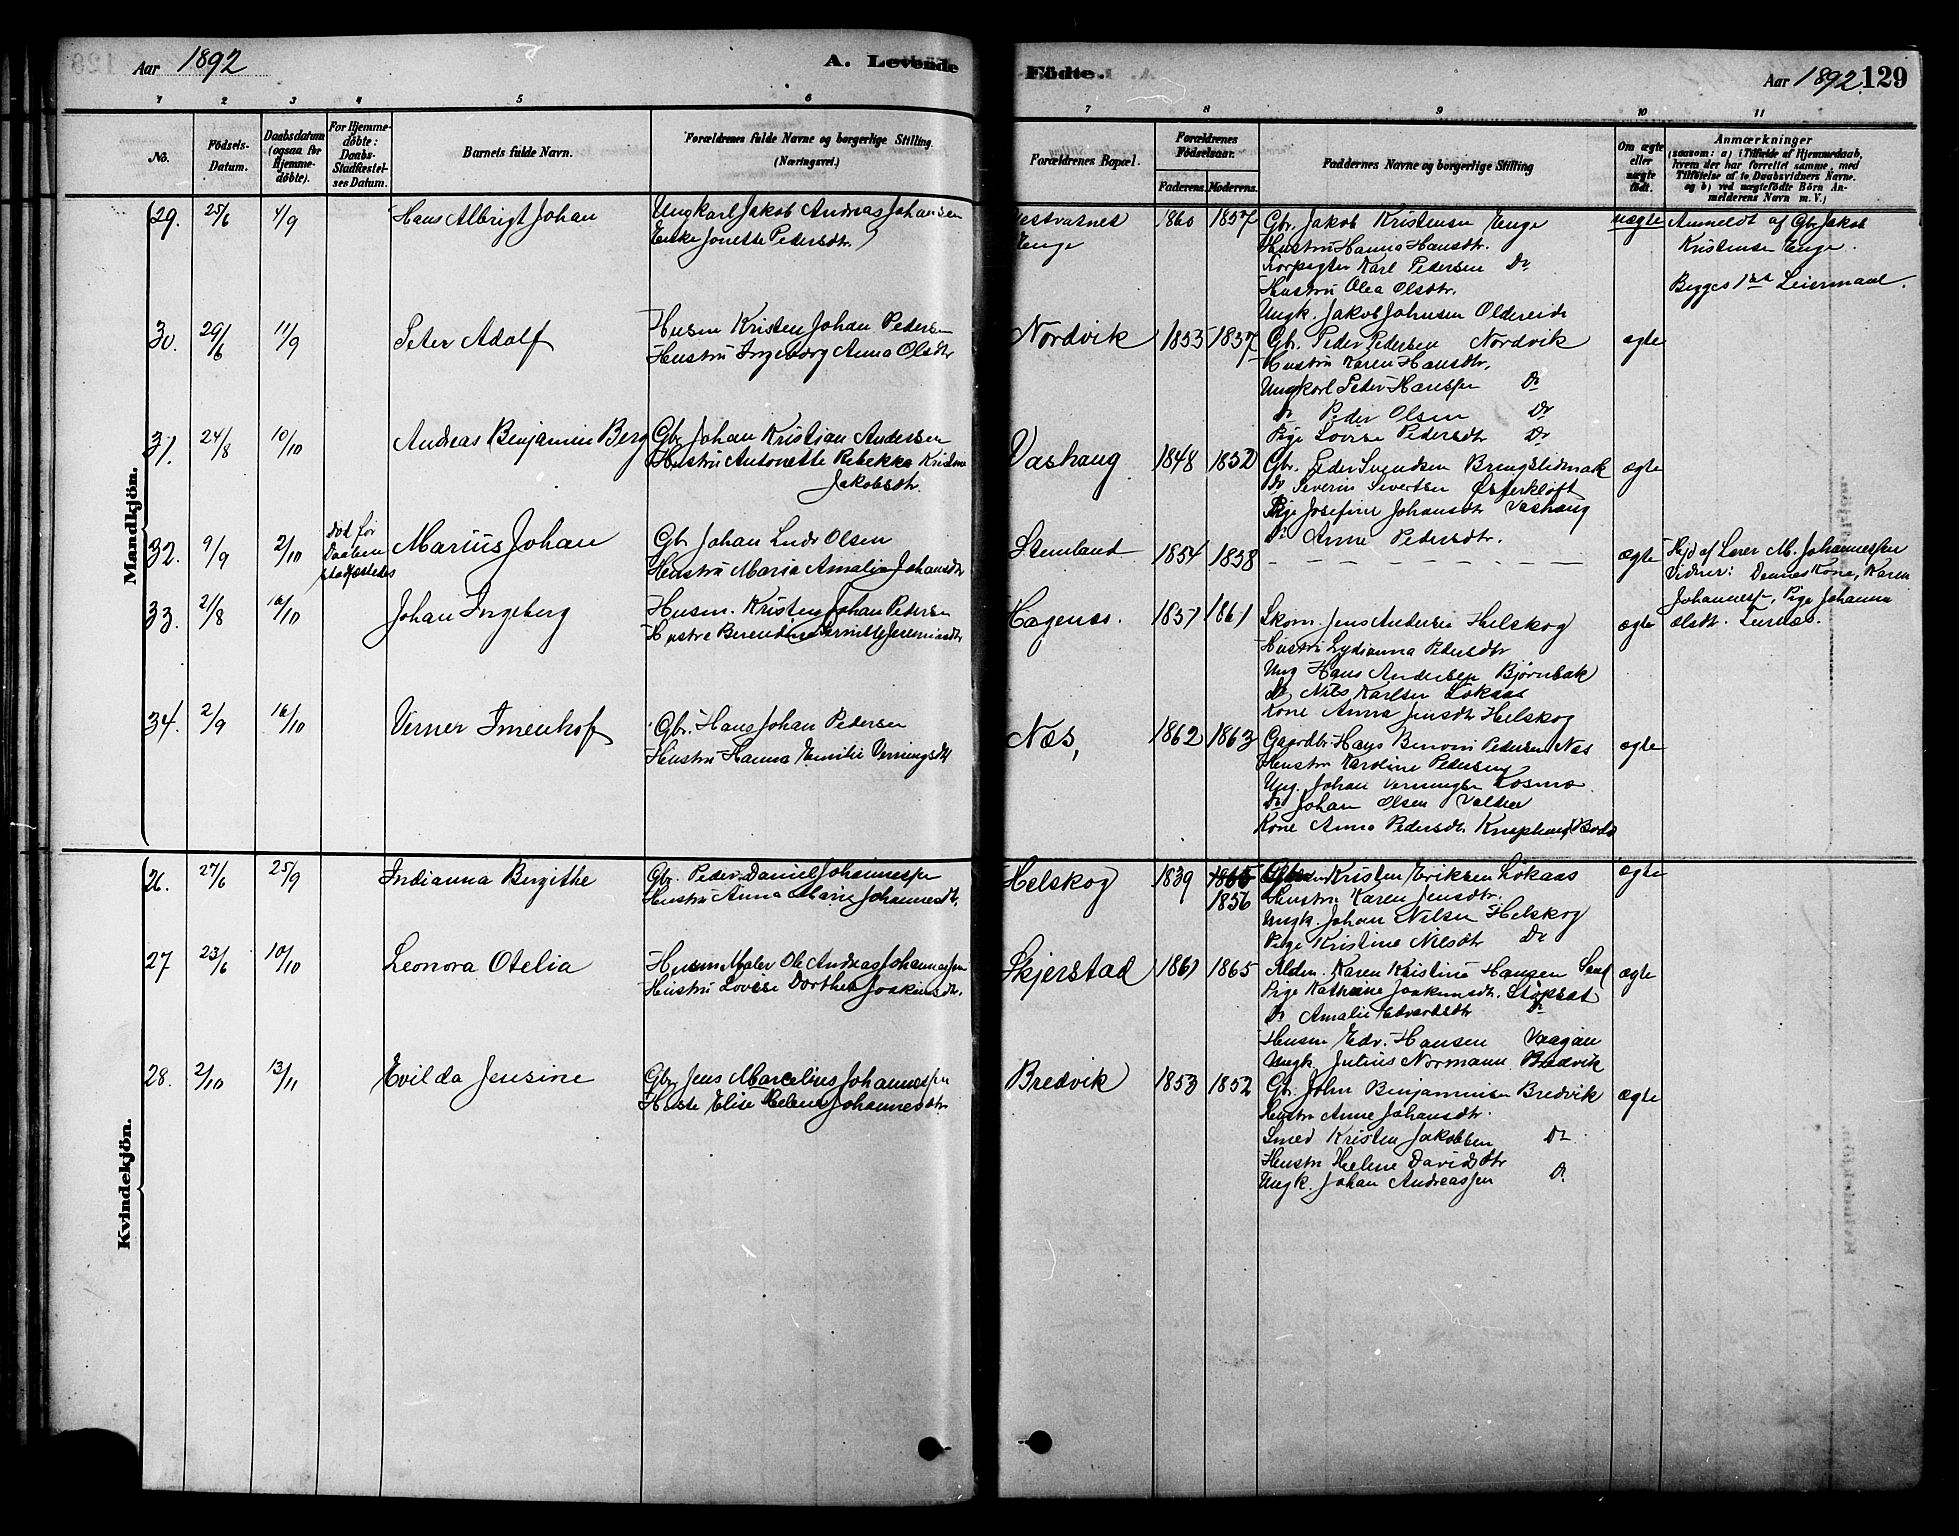 Aar 1892
A. Levende
Födte.
Aar 1892. 129
1 2 3 4 5 6
7 8 9 10 11
No.
Födsels-Datum.
Daabsdatum (ogsaa for Hjemme-döbte).
For Hjemme-döbte: Daabs-Stadfæstel-ses Datum.
Barnets fulde Navn.
Forældrenes fulde Navne og borgerlige Stilling. (Næringsvei.)
Forældrenes Bopæl.
Forældrenes Födselsaar.
Faderens. Moderens.
Faddernes Navne og borgerlige Stilling
Om ægte eller uægte födt.
Anmærkninger
(saasom: a) i Tilfælde af Hjemmedaab, hvem der har forrettet samme, med Tilföielse af to Daabsvidners Navne. og b) ved uægtefödte Börn An-melderens Navn m. V.)
Mandkjön.
29. 25/6 4/9 Hans Albrigt Johan
Ungkarl Jakob Andreas Johansen
Enke Jonette Pedersdtr.
Enge
1860 1857
Gbr. Jakob Kristensen Enge
Hustru Hanna Hansdtr.
Forpagter Karl Pedersen Do
Hustru Olea Olsdtr.
Ungk. Jakob Johnsen Oldereide
uægte
Anmeldt af Gbr. Jakob
Kristensen Enge.
Begges 1ste Leiermaal.
30. 29/6 11/9 Peter Adolf
Husm Kristen Johan Pedersen
Hustru Ingeborg Anna Olsdtr
Nordvik 1853 1857
Gbr. Peder Pedersen Nordvik
Hustru Karen Hansdtr.
Ungkarl Peder Hanssen Do
Do Peder Olsen Do
Pige Lovise Pedersdtr Do
ægte
31. 24/8 10/10 Andreas Benjamin Berg
Gbr Johan Kristian Andersen
Hustru Antonette Rebekka Kristine
Jakobsdtr.
Vashaug 1848 1852
Gbr. Peder Svendsen Bringslidmark
Do Severin Sivertsen Østerkløft
Pige Josefine Johansdtr Vashaug
Do Anne Pedersdtr.
ægte
32. 9/9 2/10
død før
Daaben
stadfæstedes
Marius Johan
Gbr Johan Ludv Olsen
Hustru Maria Amalia Johansdtr
Stemland 1854 1858
ægte
Hjd af Lærer M. Johannessen
Vidner: Dennes Kone, Karen
Johannesd, Pige Johanna
Olsdtr.
33. 21/8 16/10 Johan Ingeberg
Husm. Kristen Johan Pedersen
Hustru Berendine Pernille Jeremiasdtr
Hagenæs. 1857 1861
Skom. Jens Andersen Helskog
Hustru Lydianna Pedersdtr
Ung Hans Andersen Bjørnbak
Do Nils Karlsen Løkaas
Kone Anna Jensdtr Helskog
ægte
34. 2/9 16/10 Verner Imenhof
Gbr. Hans Johan Pedersen
Hustru Hanna Emilie Verningsdtr
Næs, 1862 1863
Gaardbr Hans Benoni Pedersen Næs
Hustru Karoline Pedersen
Ung. Johan Verningsen Kosmo
Do Johan Olsen
Kone Anna Pedersdtr. Bodø
ægte
Kvindekjön.
26. 27/6 25/9 Indianna Bergithe
Gbr. Peder Daniel Johannessen
Hustru Anna Marie Johannesdtr.
Helskog 1839 1865
1856
Kristen Eriksen Løkaas
Hustru Karen Jensdtr.
Ungk. Johan Nilsen Helskog
Pige Kristine Nilsdtr Do
ægte
27 23/6 10/10 Leonora Otelia
Husm Maler Ole Andreas Johannessen
Hustru Lovise Dorthea Joakimsdtr.
Skjerstad 1861 1865
Karen Kristine Hansen Sand
Pige Kathrine Joakimsdtr. Støpset
Do Amalie Edvardsdtr Do
Husm Edv. Hansen Vaagan
Ungk. Julius Normann Bredvik
ægte
28. 2/10 13/11 Evilda Jensine
Gbr Jens Marcelius Johannessen
Hustr Elise Helene Johannesdtr
Bredvik 1853 1852
Gbr. John Benjaminsen Bredvik
Hustru Anne Johansdtr.
Smed Kristen Jakobsen Do
Hustru Helene Davidsdtr
Ungk. Johan Andreassen Do
ægte